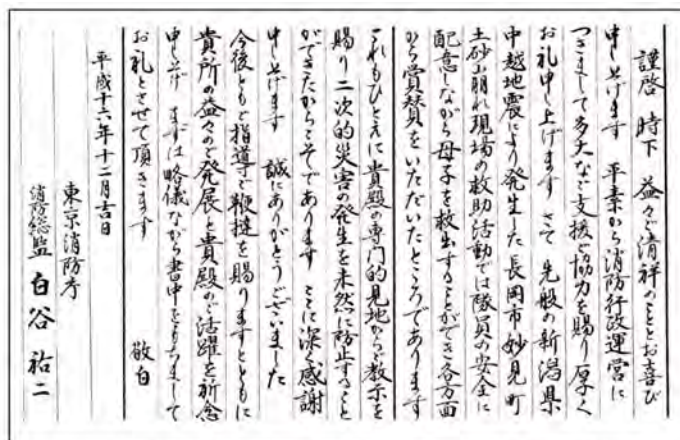 謹啓 時下 益々ご清祥のこととお喜び
申し上げます 平素から消防行政運営に
つきまして多大なご支援ご協力を賜り厚く
お礼申し上げます さて 先般の新潟県
中越地震により発生した長岡市妙見町
土砂山崩れ現場の救助活動では隊員の安全に
配意しながら母子を救出することができ各方面
から賞賛をいただいたところであります
これもひとえに貴殿の専門的見地からご教示を
賜り二次的災害の発生を未然に防止すること
ができたからこそであります ここに深く感謝
申し上げます 誠にありがとうございました
今後ともご指導ご鞭撻を賜りますとともに
貴所の益々のご発展と貴殿のご活躍を祈念
申し上げ まずは略儀ながら書中をもちまして
お礼とさせて頂きます 敬白
平成十六年十二月吉日
東京消防庁
消防総監 白谷祐二